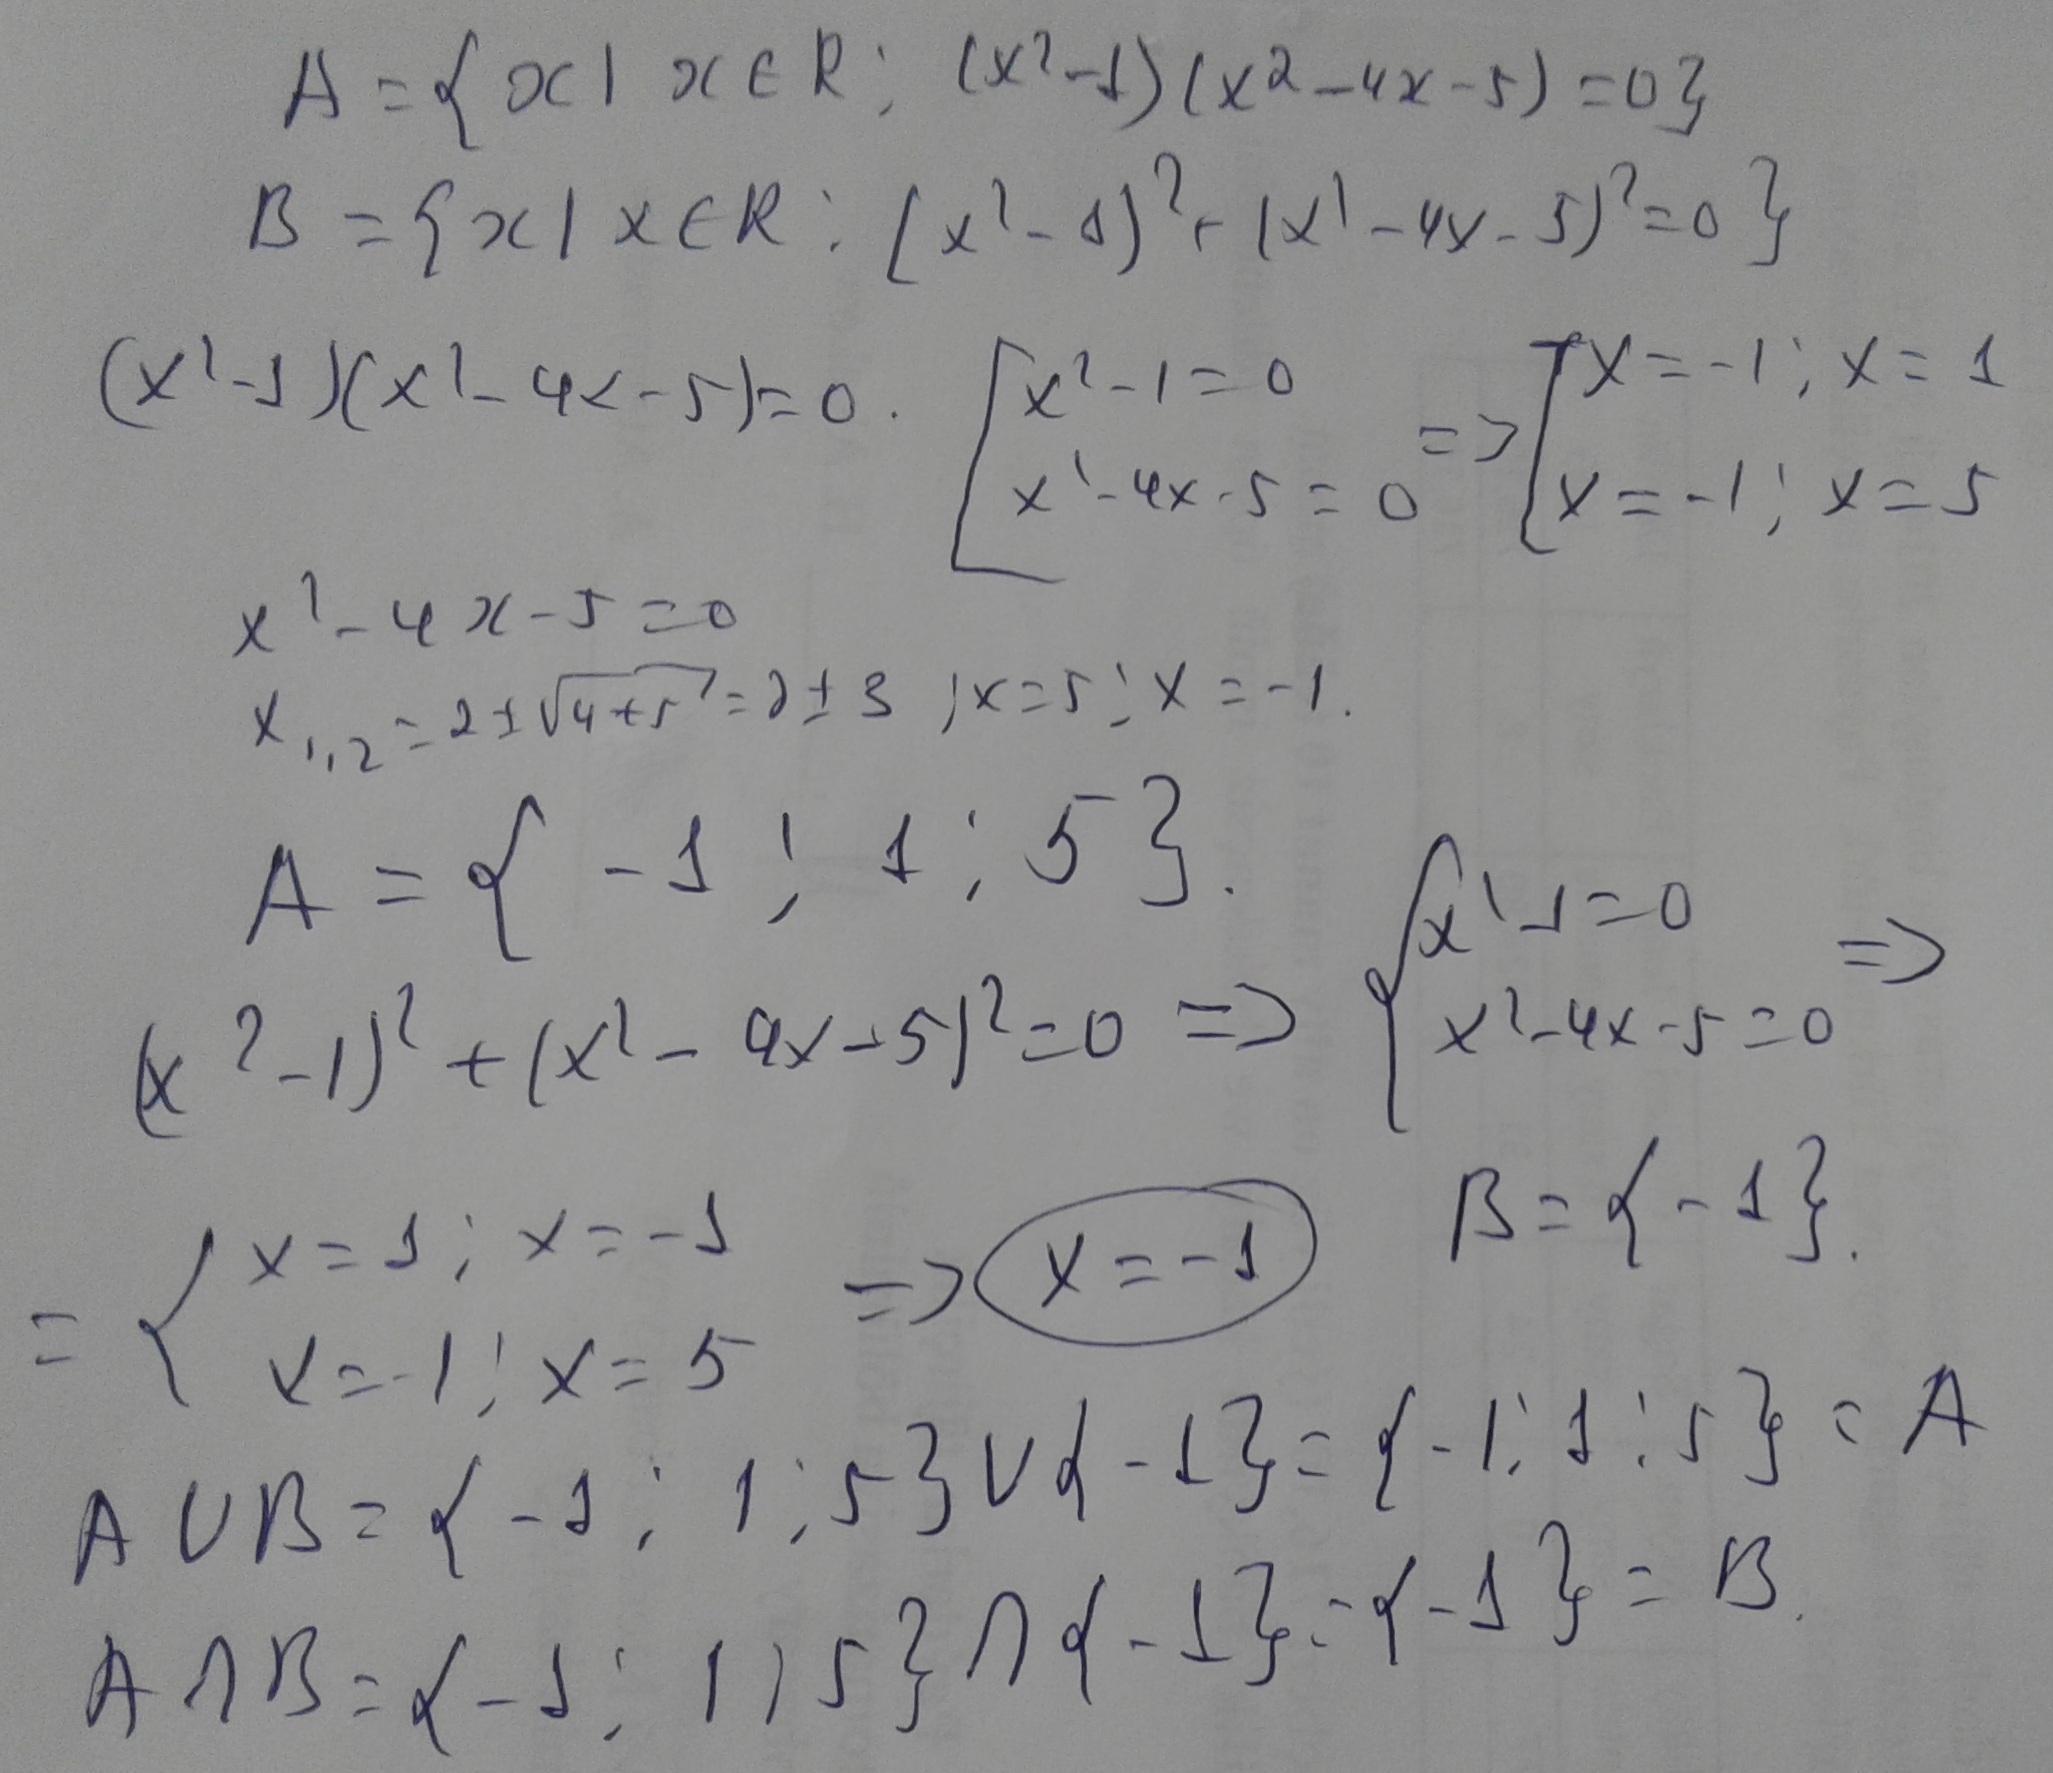 A = { x | x ∈ R ; (x² - 1)(x² - 4x - 5) = 0 }
B = { x | x ∈ R : (x² - 1)² + (x² - 4x - 5)² = 0 }
(x² - 1)(x² - 4x - 5) = 0 . [ x² - 1 = 0 ; x² - 4x - 5 = 0 => [ x = -1 ; x = 1 ; x = -1 ; x = 5
x² - 4x - 5 = 0
x₁,₂ = 2 ± √(4+5) = 2 ± 3 ; x = 5 ; x = -1 .
A = { -1 ; 1 ; 5 } .
(x² - 1)² + (x² - 4x - 5)² = 0 => { x² - 1 = 0 ; x² - 4x - 5 = 0 =>
= { x = 1 ; x = -1 ; x = -1 ; x = 5 => x = -1
B = { -1 } .
A ∪ B = { -1 ; 1 ; 5 } ∪ { -1 } = { -1 ; 1 ; 5 } = A
A ∩ B = { -1 ; 1 ; 5 } ∩ { -1 } = { -1 } = B .